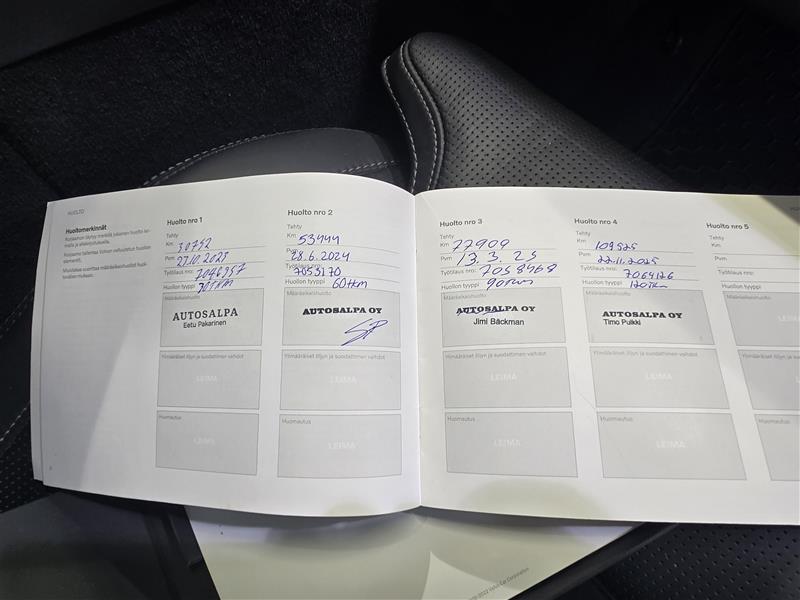 HUOLTO
Huoltomerkinnät
Huolto nro 1
Tehty
Km 30752
Pvm 27.10.2023
Työtilaus nro: 7046957
Huollon tyyppi
Määräaikaishuolto
AUTOSALPA
Eetu Pakarinen
Ylimääräiset öljyn ja suodattimen vaihdot
LEIMA
Huomautus
LEIMA
Huolto nro 2
Tehty
Km 53444
Pvm 28.6.2024
Työtilaus nro: 7053170
Huollon tyyppi 60tkm
Määräaikaishuolto
AUTOSALPA OY
Ylimääräiset öljyn ja suodattimen vaihdot
LEIMA
Huomautus
LEIMA
Huolto nro 3
Tehty
Km 77909
Pvm 13.3.25
Työtilaus nro: 7058468
Huollon tyyppi 90tkm
Määräaikaishuolto
AUTOSALPA OY
Jimi Bäckman
Ylimääräiset öljyn ja suodattimen vaihdot
LEIMA
Huomautus
LEIMA
Huolto nro 4
Tehty
Km 109525
Pvm 22.11.2025
Työtilaus nro: 7064126
Huollon tyyppi 120tkm
Määräaikaishuolto
AUTOSALPA OY
Timo Pulkki
Ylimääräiset öljyn ja suodattimen vaihdot
LEIMA
Huomautus
LEIMA
HUOLTO
Huolto nro 5
Tehty
Km
Pvm
Työtilaus nro:
Huollon tyyppi
Määräaikaishuolto
LEIMA
Ylimääräiset
Huomautus
Volvo Car Corporation